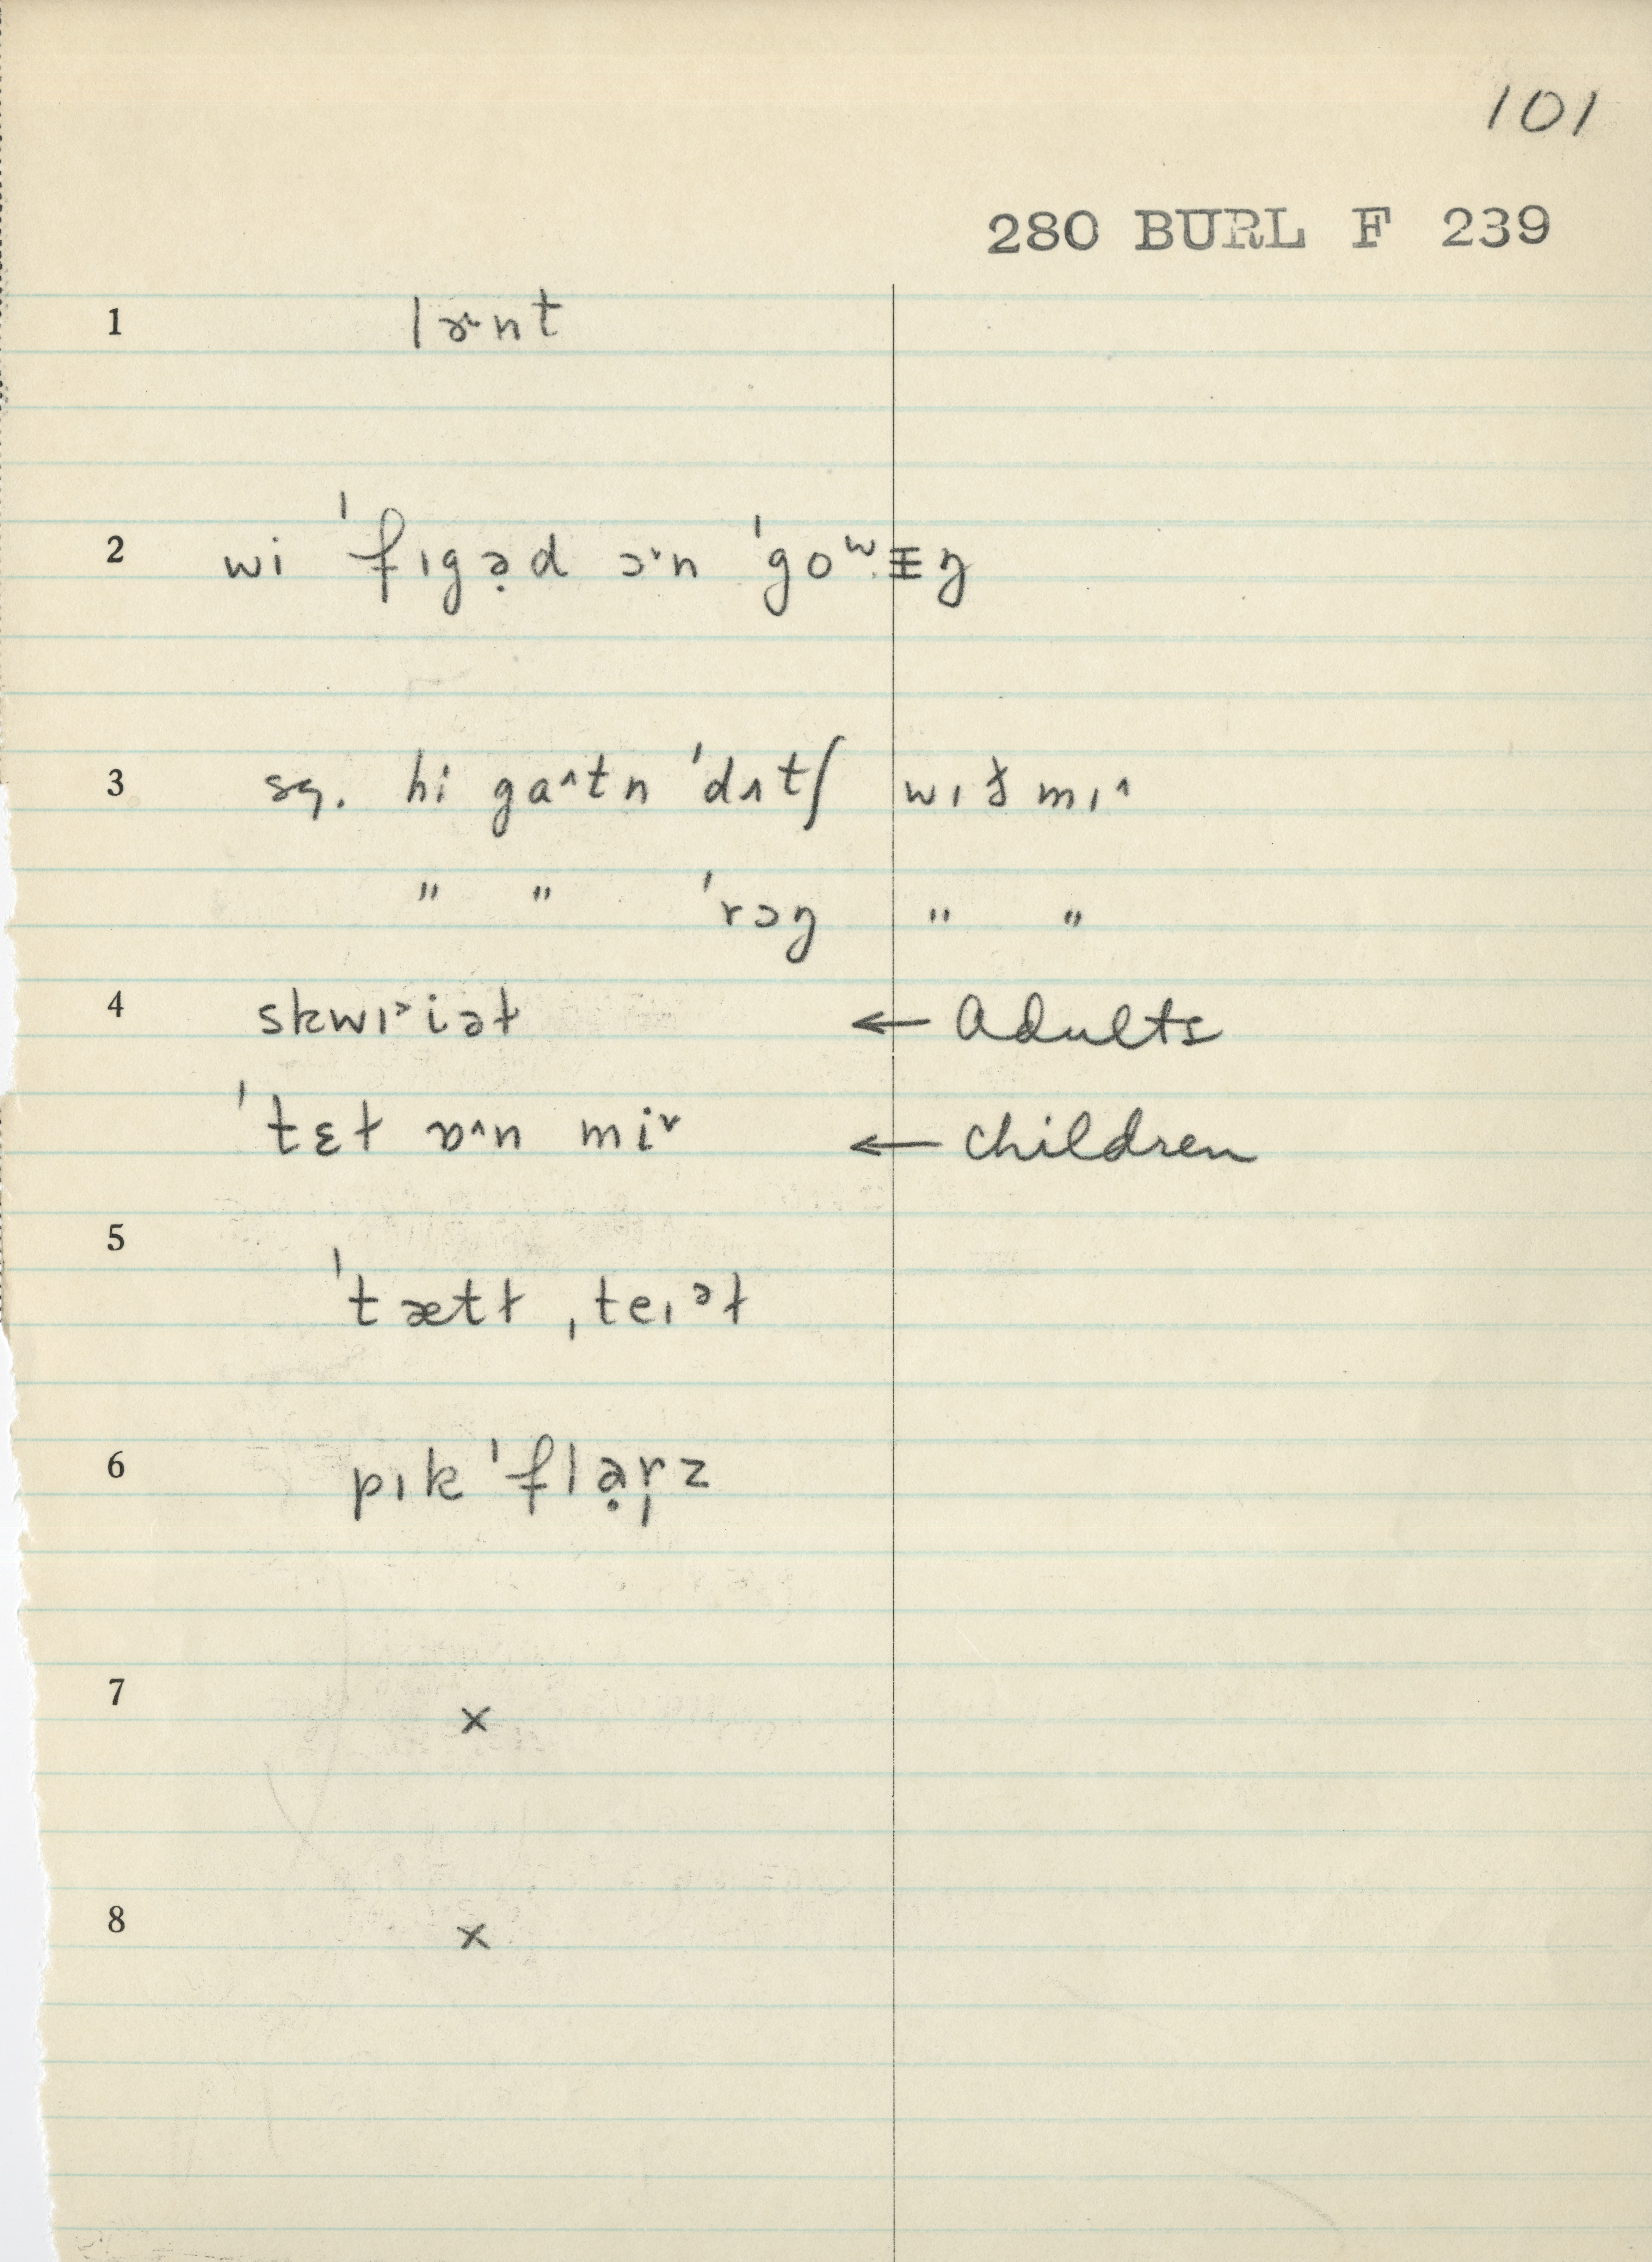 101
280 BURL F 239
1 lɚnt
2 wi ˈfɪgə̣d ɔ˅n ˈgoʷᵻŋ
3 sq. hi ga˄tn ˈdʌtʃ wɪð mɪ˄
" " ˈrɔŋ " "
4 skwɪ˃iəɫ ← Adults
ˈtɛɫ ɒ˄n mi˅ ← children
5 ˈtætɫ ˌteɪᵊɫ
6 pɪk ˈflạr̩z
7 x
8 x